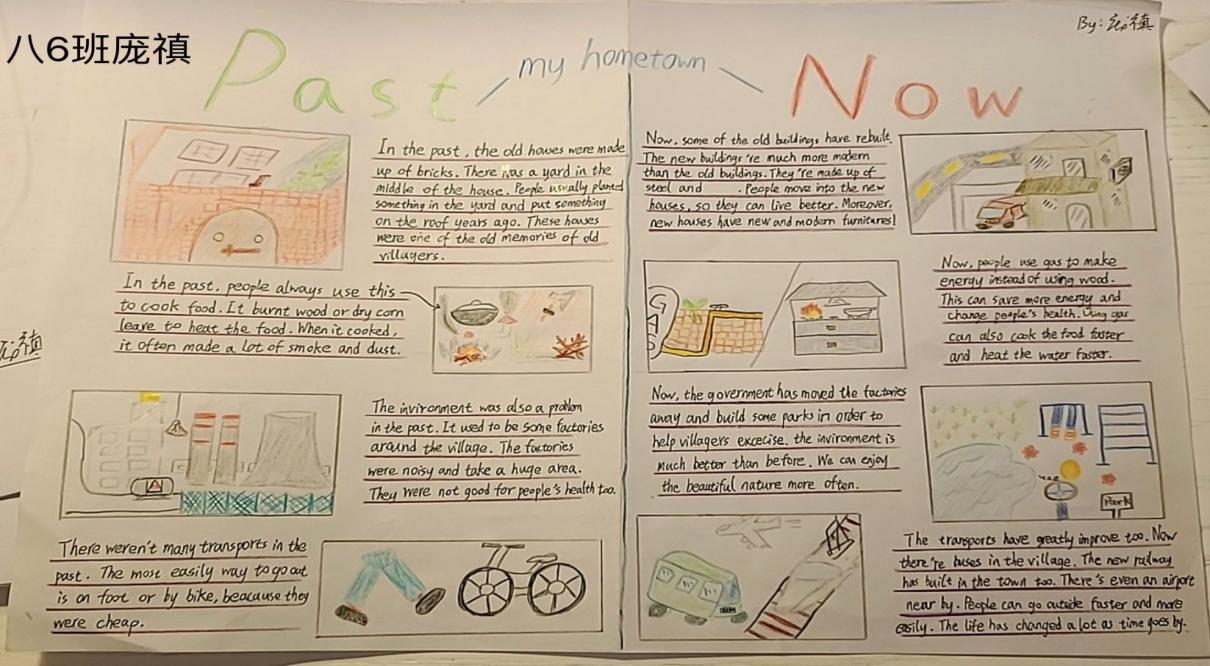 八6班庞禛
By:
Past
my hometown
Now
In the past, the old houses were made
up of bricks. There was a yard in the
middle of the house. People usually planted
something in the yard and put something
on the roof years ago. These houses
were one of the old memories of old
villagers.
In the past, people always use this
to cook food. It burnt wood or dry corn
leave to heat the food. When it cooked,
it often made a lot of smoke and dust.
The invironment was also a problem
in the past. It used to be some factories
around the village. The factories
were noisy and take a huge area.
They were not good for people's health too.
There weren't many transports in the
past. The most easily way to go out
is on foot or by bike, beacause they
were cheap.
Now, some of the old buildings have rebuilt.
The new buildings 're much more modern
than the old buildings. They're made up of
steel and . People move into the new
houses, so they can live better. Moreover,
new houses have new and modern furnitures!
Now, people use gas to make
energy instead of using wood.
This can save more energy and
change people's health. Using gas
can also cook the food faster
and heat the water faster.
GAS
Now, the government has moved the factories
away and build some parks in order to
help villagers excecise. the invironment is
much better than before. We can enjoy
the beautiful nature more often.
Park
The transports have greatly improve too. Now
there 're buses in the village. The new railway
has built in the town too. There's even an airport
near by. People can go outside faster and more
easily. The life has changed a lot as time goes by.